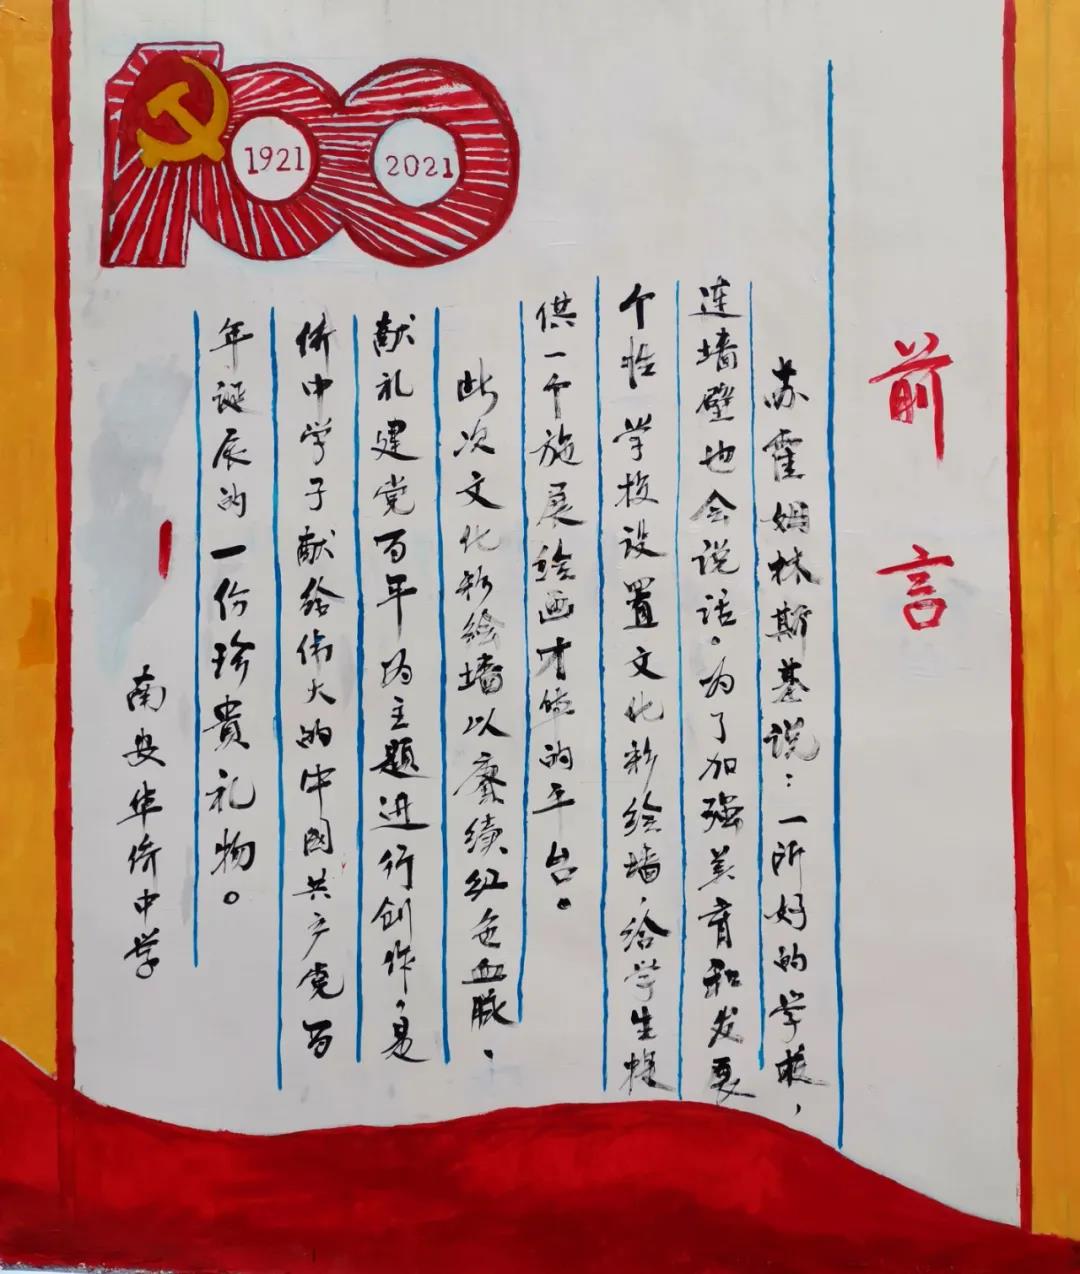 前言
苏霍姆林斯基说：一所好的学校，
连墙壁也会说话。为了加强美育和发展
个性学校设置文化彩绘墙，给学生提
供一个施展绘画才能的平台。
此次文化彩绘墙以赓续红色血脉、
献礼建党百年为主题进行创作，是
侨中学子献给伟大的中国共产党百
年诞辰的一份珍贵礼物。
南安华侨中学
1921
2021